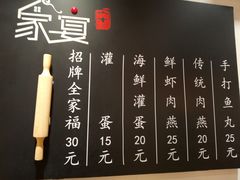 家宴
招牌全家福30元
灌蛋15元
海鲜灌蛋20元
鲜虾肉燕25元
传统肉燕20元
手打鱼丸25元